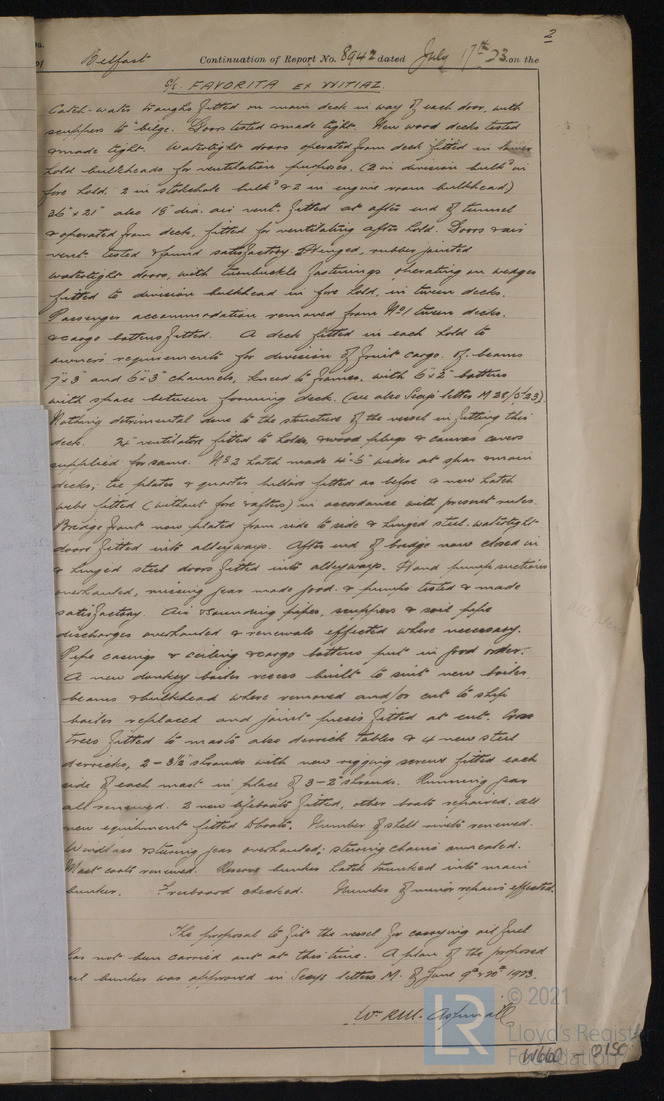 2
Belfast Continuation of Report No. 8942 dated July 17th 23. on the
S/S. FAVORITA EX WITIAZ.
Catch-water troughs fitted on main deck in way of each door, with
scuppers to bilge. Doors tested & made tight. New wood decks tested
& made tight. Watertight doors operated from deck fitted in lower
hold bulkheads for ventilation purposes. (2 in division bulkd in
fore hold, 2 in stokehole bulkd & 2 in engine room bulkhead)
36" x 21" also 18" dia. air vent. fitted at after end of tunnel
& operated from deck, fitted for ventilating after hold. Doors & air
vent tested & found satisfactory. Hinged, rubber jointed
watertight doors, with turnbuckle fastenings operating on wedges
fitted to division bulkhead in fore hold, in tween decks.
Passenger accommodation removed from No1 tween decks.
& cargo battens fitted. A deck fitted in each hold to
owners requirements for division of fruit cargo. of beams
7" x 3" and 6" x 3" channels, kneed to frames, with 6" x 2" battens
with space between forming deck. (see also Secys letter M 28/5/23).
Nothing detrimental done to the structure of the vessel in fitting this
deck. 24 ventilators fitted to holds, & wood plugs & canvas covers
supplied for same. No2 hatch made 4'-5" wider at spar & main
decks; tie plates & quarter pillars fitted as before & new hatch
webs fitted (without fore & afters) in accordance with present rules.
Bridge front now plated from side to side & hinged steel watertight
doors fitted into alleyways. After end of bridge now closed in
& hinged steel doors fitted into alleyways. Hand pump suctions
overhauled, missing gear made good. & pumps tested & made
satisfactory. Air & sounding pipes, scuppers & soil pipe
discharges overhauled & renewals effected where necessary.
Pipe casings & ceiling & cargo battens put in good order.
A new donkey boiler recess built to suit new boiler.
beams & bulkhead where removed and/or cut to ship
boiler replaced and joint pieces fitted at cut. Cross
trees fitted to masts also derrick tables & 4 new steel
derricks, 2 - 3½" shrouds with new rigging screws fitted each
side of each mast in place of 3 - 2" shrouds. Running gear
all renewed. 2 new lifeboats fitted, other boats repaired. all
new equipment fitted to boats. Number of shell rivets renewed.
Windlass & steering gear overhauled; steering chains annealed.
Mast coats renewed. Reserve bunker hatch trunked into main
bunker. Freeboard checked. Number of minor repairs effected.
The proposal to fit the vessel for carrying oil fuel
has not been carried out at this time. A plan of the proposed
oil bunker was approved in Secys letters M. of June 9th & 20th 1923.
Wm R.M. Aspinall
© 2021
LR
Lloyd's Register
Foundation
W660 - 0150